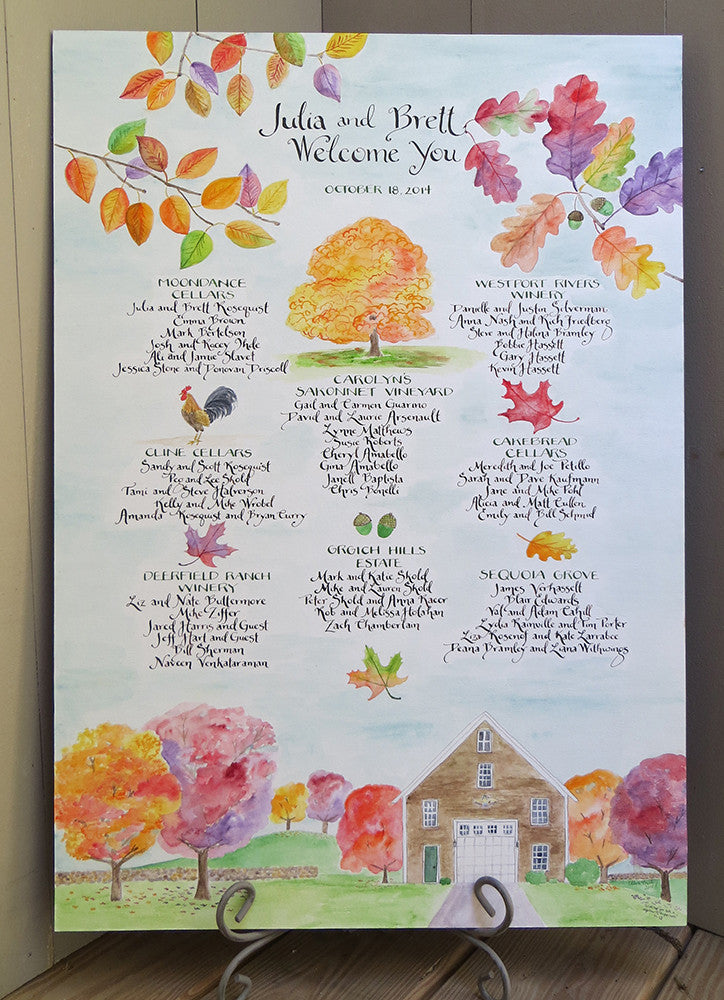 Julia and Brett
Welcome You
OCTOBER 18, 2014
MOONDANCE
CELLARS
Julia and Brett Rosequist
Emma Brown
Mark Bertelson
Josh and Kacey Ihde
Ali and Jamie Slavet
Jessica Stone and Donovan Driscoll
CLINE CELLARS
Sandy and Scott Rosequist
Peo and Lee Skold
Tami and Steve Halverson
Kelly and Mike Wrobel
Amanda Rosequist and Bryan Curry
DEERFIELD RANCH
WINERY
Liz and Nate Buttermore
Mike Ziffer
Jared Harris and Guest
Jeff Hart and Guest
Bill Sherman
Naveen Venkataraman
CAROLYN'S
SAKONNET VINEYARD
Gail and Carmen Guarino
David and Laurie Arsenault
Lynne Matthews
Susie Roberts
Cheryl Amabello
Gina Amabello
Janell Baptista
Chris Bonelli
GRGICH HILLS
ESTATE
Mark and Katie Skold
Mike and Lauren Skold
Peter Skold and Anna Racer
Rob and Melissa Holahan
Zach Chamberlain
WESTPORT RIVERS
WINERY
Danielle and Justin Silverman
Anna Nash and Rich Friedberg
Steve and Halina Bramley
Bobbie Hassett
Gary Hassett
Kevin Hassett
CAKEBREAD
CELLARS
Meredith and Joe Petillo
Sarah and Dave Kaufmann
Jane and Mike Pohl
Alicia and Matt Cullen
Emily and Bill Schmid
SEQUOIA GROVE
James Verhassett
Blair Edwards
Val and Adam Cahill
Lydia Rainville and Tim Porter
Liza Rosenof and Kate Larrabee
Deana Bramley and Liana Withwings